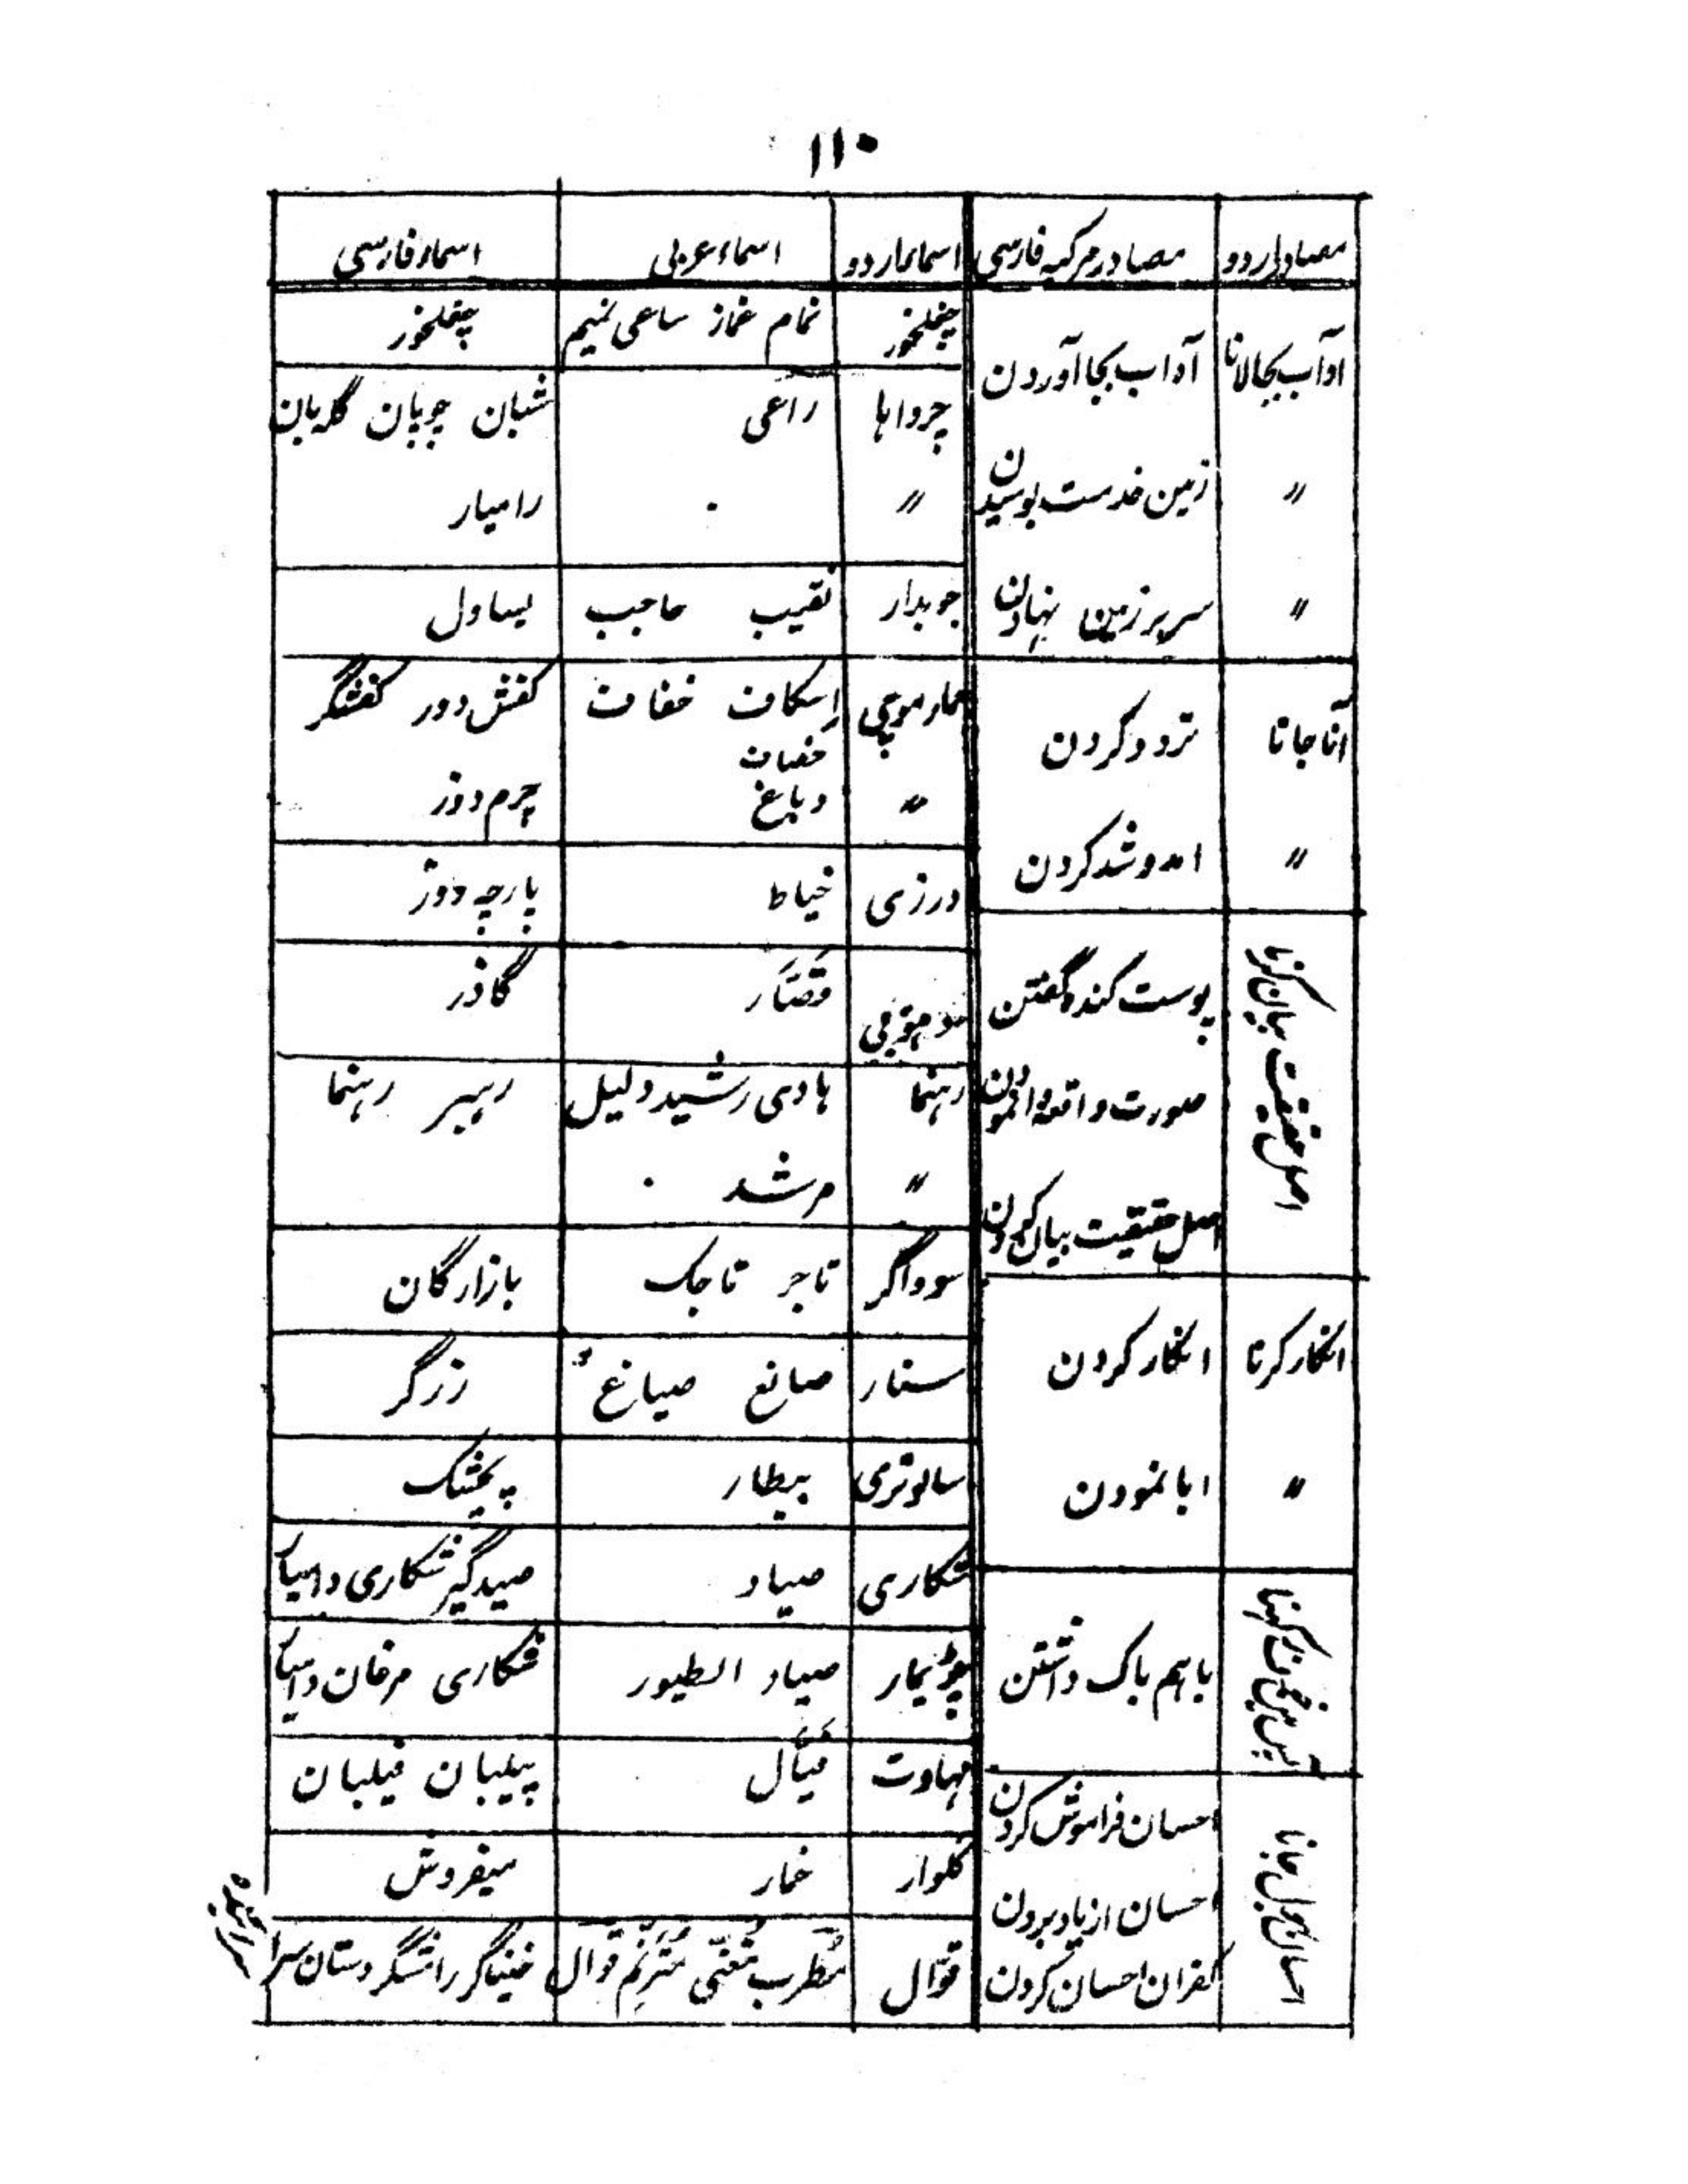 ۱۱۰
مصادر اردو | مصادر مرکبہ فارسی | اسماء اردو | اسماء عربی | اسماء فارسی
آداب بجالانا | آداب بجا آوردن
〃 | زمین خدمت بوسیدن
〃 | سر بر زمین نہادن
آنا جانا | تردد کردن
〃 | آمد و شد کردن
اصل حقیقت بیان کرنا | پوست کندہ گفتن
صورت واقعہ وانمودن
اصل حقیقت بیان کردن
انکار کرنا | انکار کردن
〃 | ابا نمودن
باہم باک داشتن
احسان بھول جانا | احسان فراموش کردن
احسان از یاد بردن
کفران احسان کردن
چغلخور | نمام غماز ساعی نمیم | چغلخور
چرواہا | راعی | شبان چوپان گلہ بان
〃 | . | رامیار
چوبدار | نقیب حاجب | یساول
چمار موچی | اِسکاف خفاف | کفش دوز کفشگر
خفاف
〃 | دباغ | چرم دوز
درزی | خیاط | پارچہ دوز
دھوبی | قَصَّار | گاذر
رہنما | ہادی رشید دلیل | رہبر رہنما
〃 | مرشد .
سوداگر | تاجر تاجک | بازارگان
سنار | صانع صیاغ | زرگر
سالوتری | بیطار | پچشک
شکاری | صیاد | صیدگیر شکاری دامیار
چڑیمار | صیاد الطیور | شکاری مرغان دامیار
مہاوت | فَیَّال | پیلبان فیلبان
کلوار | خمار | میفروش
قوّال | مُطرِب مُغنّی مُترنِّم قوّال | خنیاگر رامشگر دستان سرا